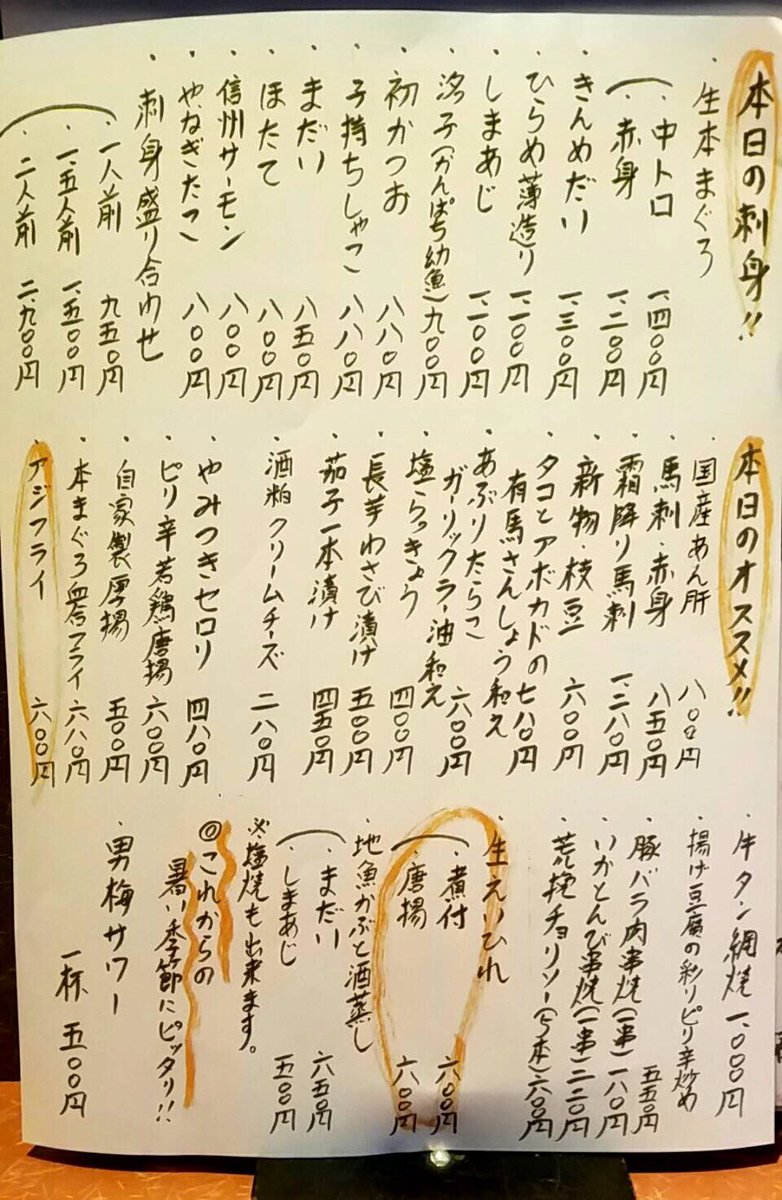 本日の刺身!!
・生本まぐろ
・中トロ 一、四〇〇円
・赤身 一、二〇〇円
・きんめだい 一、三〇〇円
・ひらめ薄造り 一、一〇〇円
・しまあじ 一、一〇〇円
・汐子(かんぱち幼魚) 九〇〇円
・初かつお 八八〇円
・子持ちしゃこ 八八〇円
・まだい 八五〇円
・ほたて 八〇〇円
・信州サーモン 八〇〇円
・やなぎたこ 八〇〇円
・刺身盛り合わせ
・一人前 九五〇円
・一、五人前 一、五〇〇円
・二人前 二、九〇〇円
本日のオススメ!!
・国産あん肝 八〇〇円
・馬刺・赤身 八五〇円
・霜降り馬刺 一、二八〇円
・新物・枝豆 六〇〇円
・タコとアボカドの
有馬さんしょう和え 七八〇円
・あぶりたらこ
ガーリックラー油和え 六八〇円
・塩らっきょう 四〇〇円
・長芋わさび漬け 五〇〇円
・茄子一本漬け 四五〇円
・酒粕クリームチーズ 二八〇円
・やみつきセロリ 四八〇円
・ピリ辛若鶏唐揚 六〇〇円
・自家製厚揚 五〇〇円
・本まぐろ血合フライ 六八〇円
・アジフライ 六〇〇円
・牛タン網焼 一、〇〇〇円
・揚げ豆腐の彩りピリ辛炒め
五五〇円
・豚バラ肉串焼(一串)一八〇円
・いかとんび串焼(一串)二二〇円
・荒挽チョリソー(5本)六〇〇円
・生えいひれ
・煮付 六〇〇円
・唐揚 六〇〇円
・地魚かぶと酒蒸し
・まだい 六五〇円
・しまあじ 五〇〇円
※塩焼も出来ます。
◎これからの
暑い季節にピッタリ!!
・男梅サワー
一杯 五〇〇円